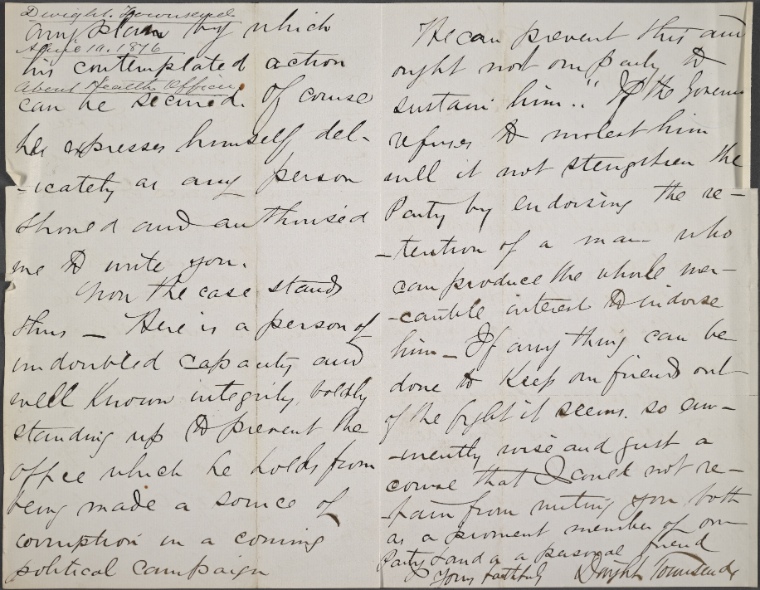 Dwight Townsend
any plan by which
April 10. 1876
his contemplated action
About Health Officer
can be secured. Of course
he expresses himself del-
-icately as any person
should and authorised
me to write you.
Now the case stands
thus — Here is a person of
undoubted capacity and
well known integrity, boldly
standing up to prevent the
office which he holds from
being made a source of
corruption in a coming
political campaign
He can prevent this and
ought not our party to
sustain him." If the Govern
refuses to molest him
will it not stengthen the
Party by endorsing the re-
-tention of a man who
can produce the whole mer-
-cantile interest to indorse
him — If any thing can be
done to keep our friends out
of the fight it seems so em-
-mently wise and just a
course that I could not re-
-frain from writing you both
as a proment member of our
Party and a a personal friend
Yours faithfully Dwight Townsend